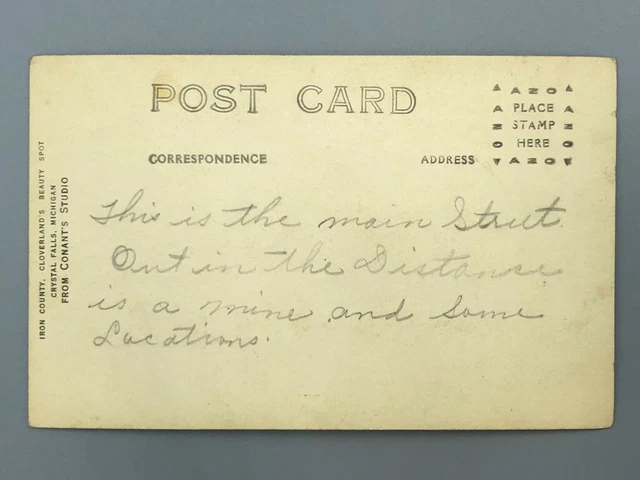 POST CARD
CORRESPONDENCE
ADDRESS
AZO
PLACE
STAMP
HERE
AZO
IRON COUNTY, CLOVERLAND'S BEAUTY SPOT
CRYSTAL FALLS, MICHIGAN
FROM CONANT'S STUDIO
This is the main Street.
Out in the Distance
is a mine and Some
Locations.